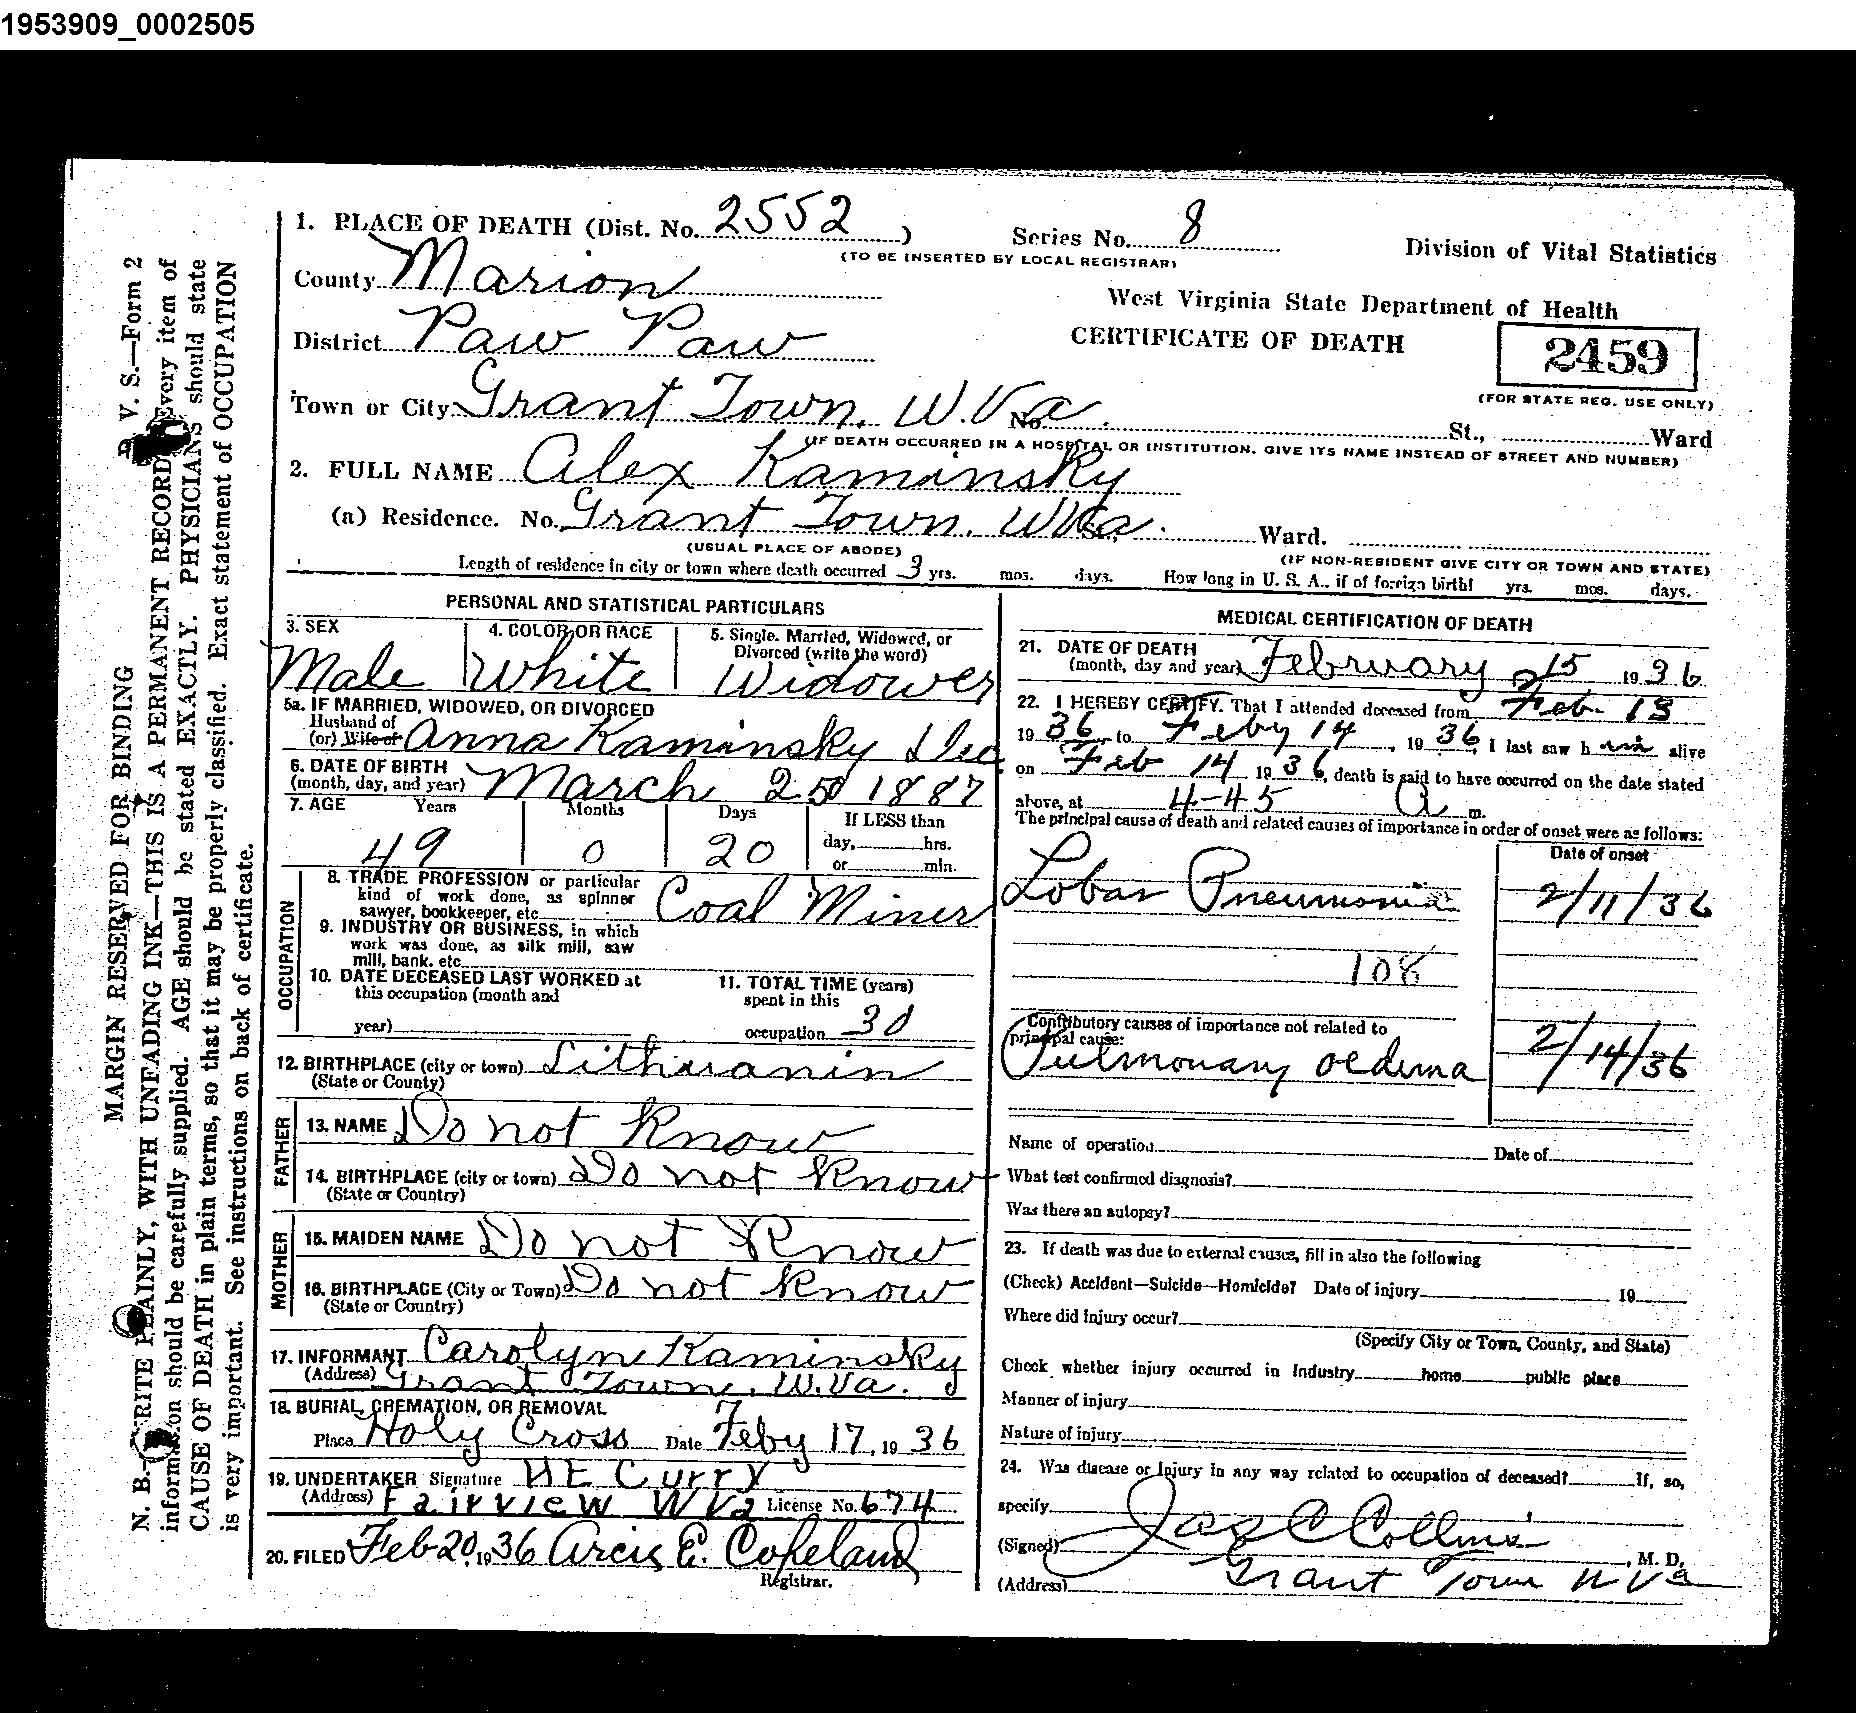 1953909_0002505
1. PLACE OF DEATH (Dist. No. 2552 ) Series No. 8 Division of Vital Statistics
(TO BE INSERTED BY LOCAL REGISTRAR)
County Marion
West Virginia State Department of Health
District Paw Paw CERTIFICATE OF DEATH 2459
(FOR STATE REG. USE ONLY)
Town or City Grant Town, W.Va. No. St., Ward
(IF DEATH OCCURRED IN A HOSPITAL OR INSTITUTION, GIVE ITS NAME INSTEAD OF STREET AND NUMBER)
2. FULL NAME Alex Kaminsky
(a) Residence. No. Grant Town, W.Va. Ward.
(USUAL PLACE OF ABODE) (IF NON-RESIDENT GIVE CITY OR TOWN AND STATE)
Length of residence in city or town where death occurred 3 yrs. mos. days. How long in U. S. A., if of foreign birth? yrs. mos. days.
PERSONAL AND STATISTICAL PARTICULARS
3. SEX 4. COLOR OR RACE 5. Single, Married, Widowed, or
Divorced (write the word)
Male White Widower
5a. IF MARRIED, WIDOWED, OR DIVORCED
Husband of
(or) Wife of Anna Kaminsky Dec
6. DATE OF BIRTH
(month, day, and year) March 25 1887
7. AGE Years Months Days If LESS than
day, hrs.
49 0 20 or min.
OCCUPATION
8. TRADE PROFESSION or particular
kind of work done, as spinner
sawyer, bookkeeper, etc. Coal Miner
9. INDUSTRY OR BUSINESS, in which
work was done, as silk mill, saw
mill, bank, etc.
10. DATE DECEASED LAST WORKED at
this occupation (month and
year)
11. TOTAL TIME (years)
spent in this
occupation 30
12. BIRTHPLACE (city or town) Lithuanin
(State or County)
FATHER
13. NAME Do not Know
14. BIRTHPLACE (city or town) Do not Know
(State or Country)
MOTHER
15. MAIDEN NAME Do not Know
16. BIRTHPLACE (City or Town) Do not Know
(State or Country)
17. INFORMANT Carolyn Kaminsky
(Address) Grant Town, W.Va.
18. BURIAL, CREMATION, OR REMOVAL
Place Holy Cross Date Feby 17, 19 36
19. UNDERTAKER Signature HE Curry
(Address) Fairview W Va License No. 674
20. FILED Feb 20, 19 36 Arcis E. Copeland
Registrar.
MEDICAL CERTIFICATION OF DEATH
21. DATE OF DEATH
(month, day and year) February 15 19 36
22. I HEREBY CERTIFY, That I attended deceased from Feb 13
19 36, to Feby 14, 19 36, I last saw h im alive
on Feb 14 19 36, death is said to have occurred on the date stated
above, at 4-45 A m.
The principal cause of death and related causes of importance in order of onset were as follows:
Date of onset
Lobar Pneumonia 2/11/36
108
Contributory causes of importance not related to
principal cause:
Pulmonary oedema 2/14/36
Name of operation Date of
What test confirmed diagnosis?
Was there an autopsy?
23. If death was due to external causes, fill in also the following
(Check) Accident—Suicide—Homicide? Date of injury 19
Where did injury occur?
(Specify City or Town, County, and State)
Check whether injury occurred in Industry home public place
Manner of injury
Nature of injury
24. Was disease or Injury in any way related to occupation of deceased? If, so,
specify
(Signed) Jas C Collins, M. D.
(Address) Grant Town W Va
D. V. S.—Form 2
MARGIN RESERVED FOR BINDING
N. B.—WRITE PLAINLY, WITH UNFADING INK—THIS IS A PERMANENT RECORD. Every item of
information should be carefully supplied. AGE should be stated EXACTLY. PHYSICIANS should state
CAUSE OF DEATH in plain terms, so that it may be properly classified. Exact statement of OCCUPATION
is very important. See instructions on back of certificate.